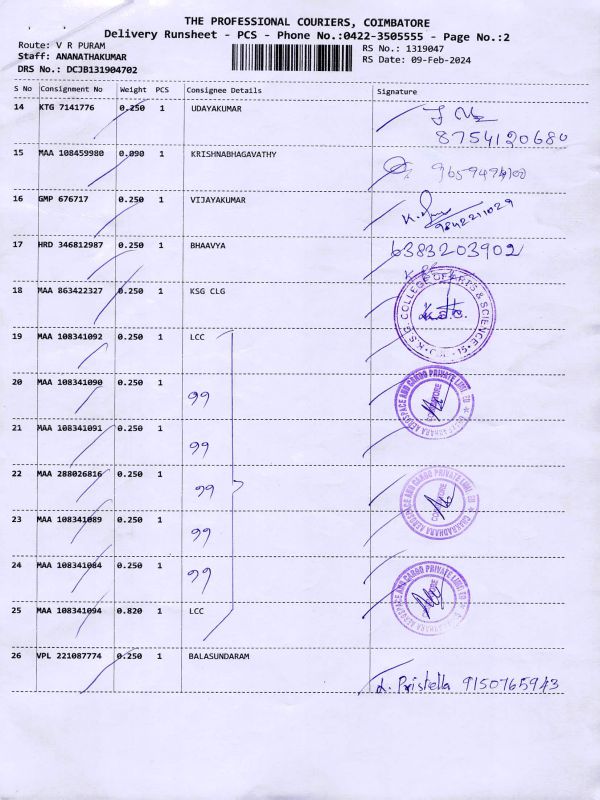 THE PROFESSIONAL COURIERS, COIMBATORE
Delivery Runsheet - PCS - Phone No.:0422-3505555 - Page No.:2
Route: V R PURAM
RS No.: 1319047
Staff: ANANATHAKUMAR
RS Date: 09-Feb-2024
DRS No.: DCJB131904702
S No Consignment No Weight PCS Consignee Details Signature
14 KTG 7141776 0.250 1 UDAYAKUMAR
8754120680
15 MAA 108459980 0.090 1 KRISHNABHAGAVATHY
16 GMP 676717 0.250 1 VIJAYAKUMAR
9842211029
17 HRD 346812987 0.250 1 BHAAVYA 6383203902
18 MAA 863422327 0.250 1 KSG CLG
COLLEGE OF ARTS & SCIENCE
19 MAA 108341092 0.250 1 LCC
20 MAA 108341090 0.250 1 99
AEROSPACE AND CARGO PRIVATE LIMITED
COIMBATORE
21 MAA 108341091 0.250 1 99
22 MAA 288026816 0.250 1 99
CHAKRADHARA AEROSPACE AND CARGO PRIVATE LIMITED
23 MAA 108341089 0.250 1 99
24 MAA 108341084 0.250 1 99
AEROSPACE AND CARGO PRIVATE LIMITED
25 MAA 108341094 0.820 1 LCC
26 VPL 221087774 0.250 1 BALASUNDARAM
Pristella 9150765943